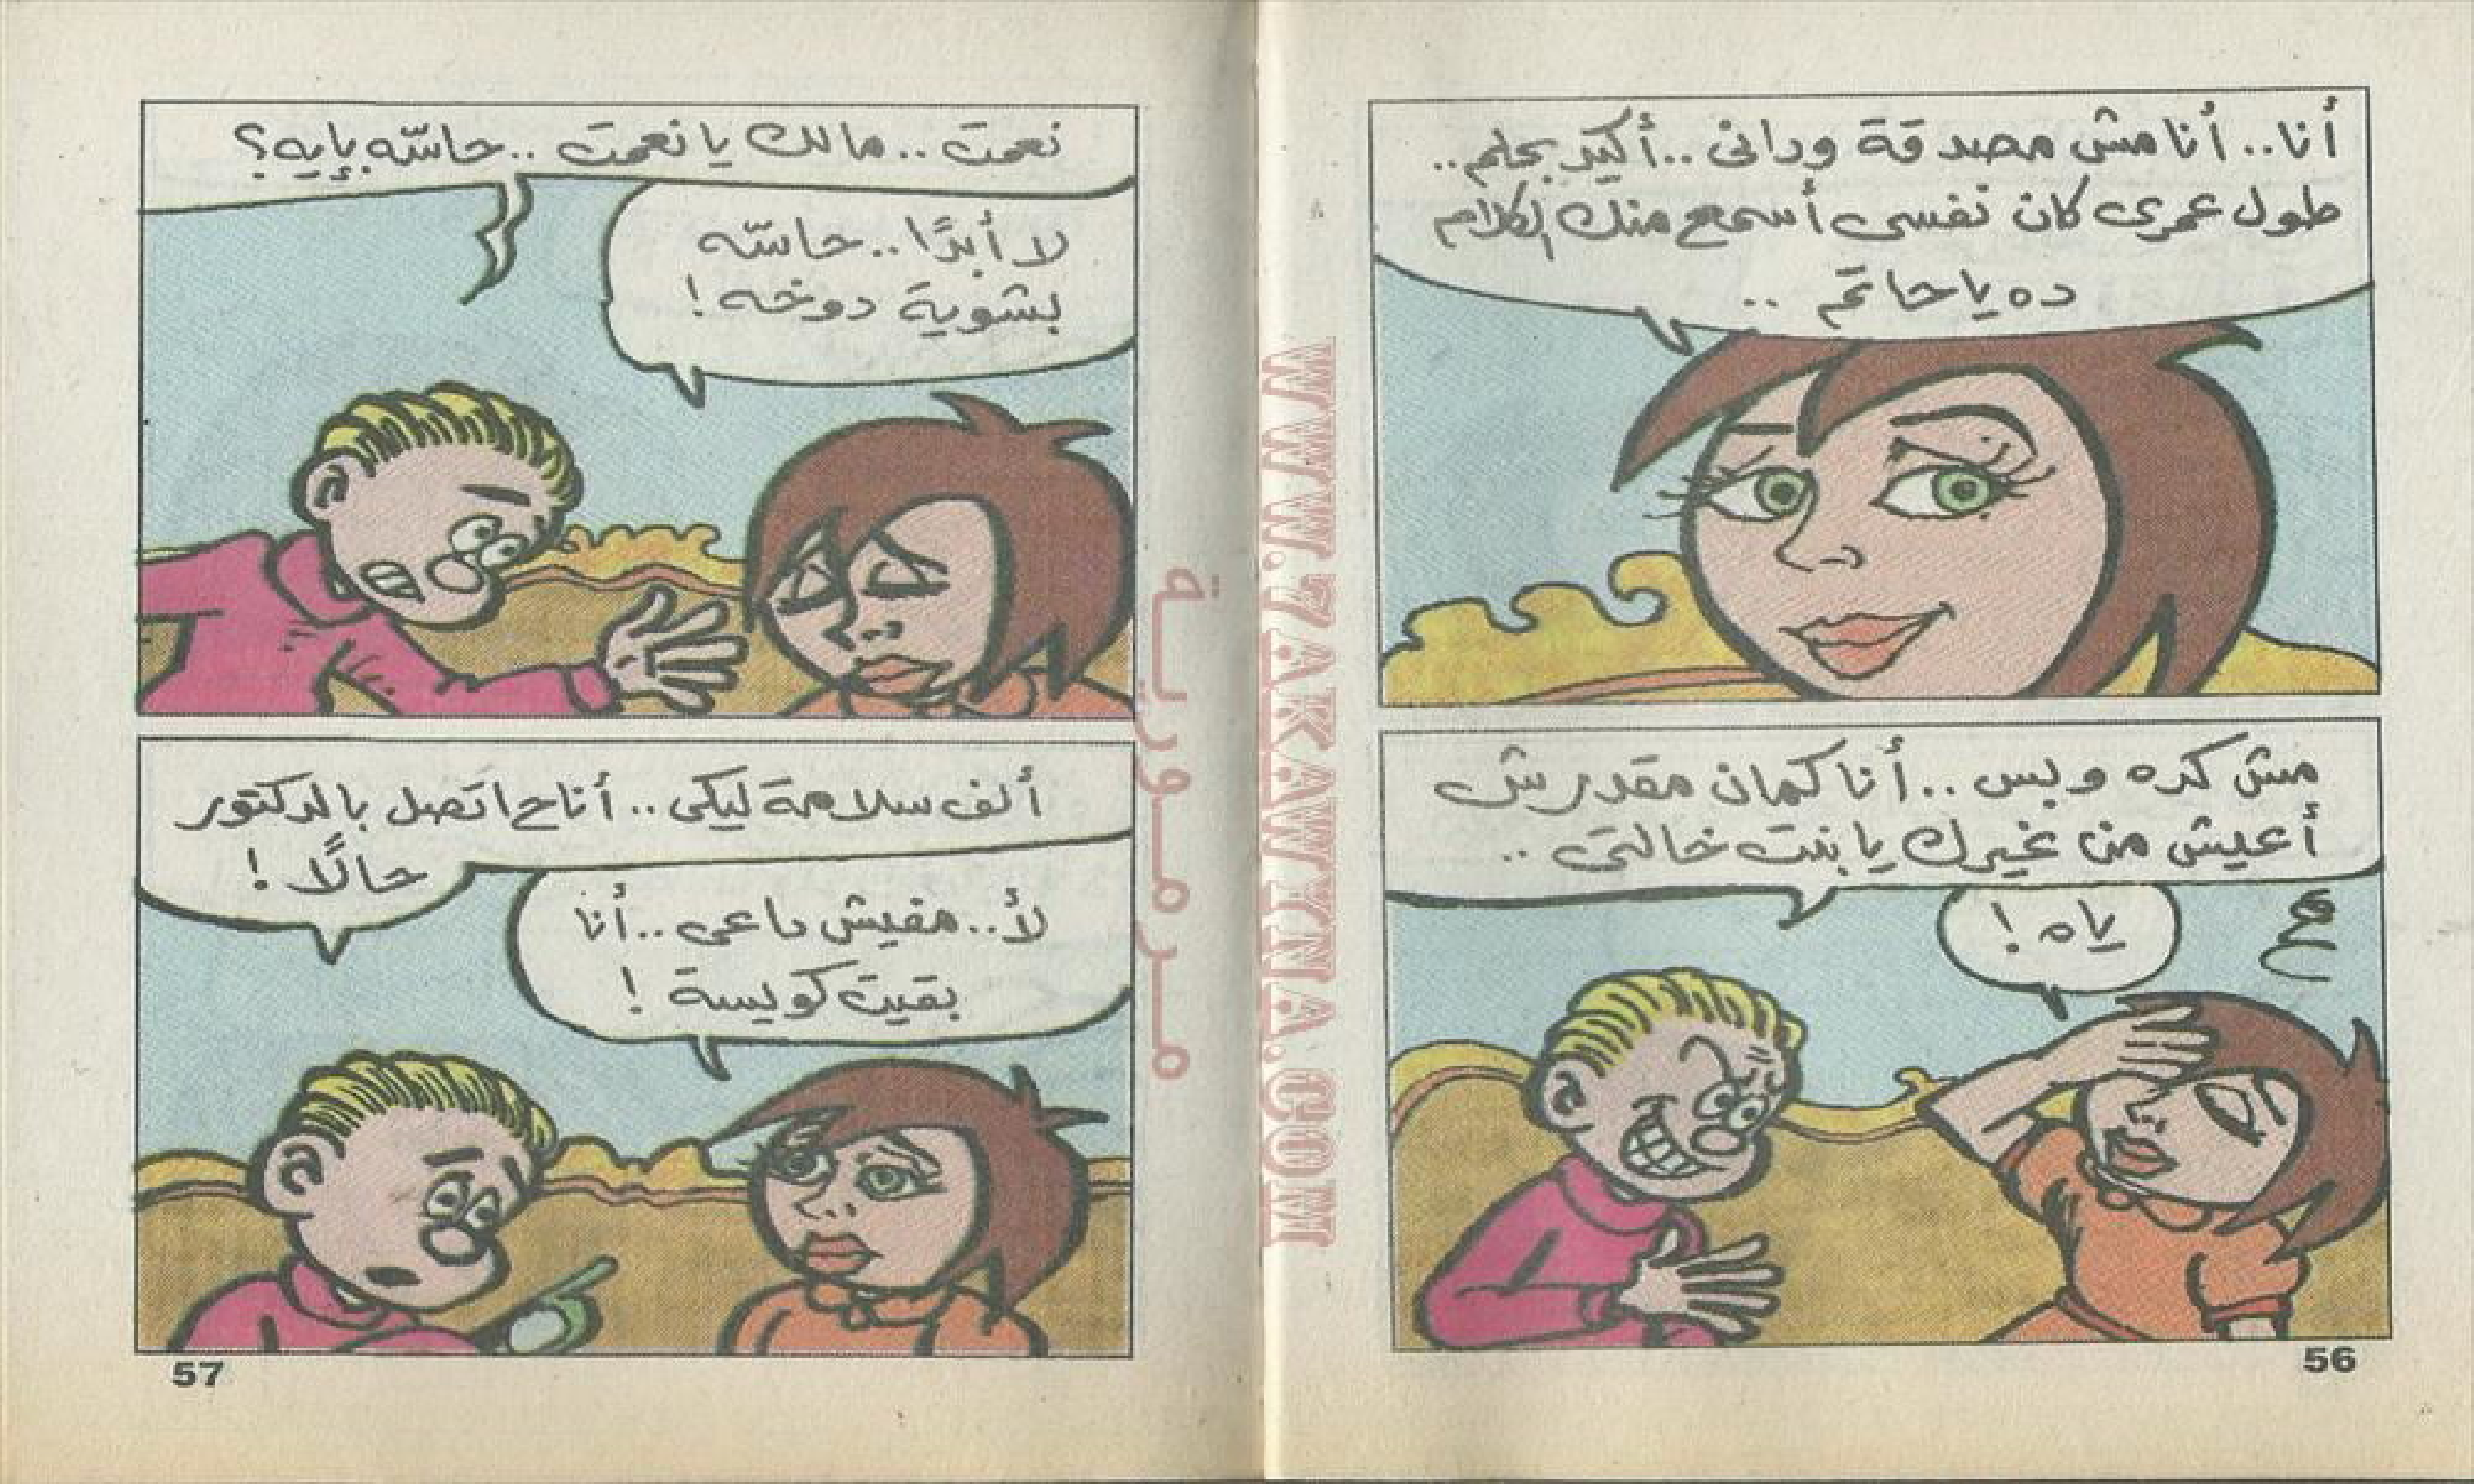 أنا.. أنا مش مصدقة ودانى.. أكيد بحلم..
طول عمرى كان نفسى أسمع منك الكلام
ده يا حاتم ..
مش كده وبس .. أنا كمان مقدرش
أعيش من غيرك يا بنت خالتى ..
ياه !
56
نعمت .. مالك يا نعمت .. حاسّه بإيه؟
لا أبدًا.. حاسّه
بشوية دوخه !
ألف سلامة ليكى .. أنا ح اتصل بالدكتور
حالًا !
لأ.. مفيش داعى .. أنا
بقيت كويسة !
57
مرمورية
WWW.7AKAWYINA.COM